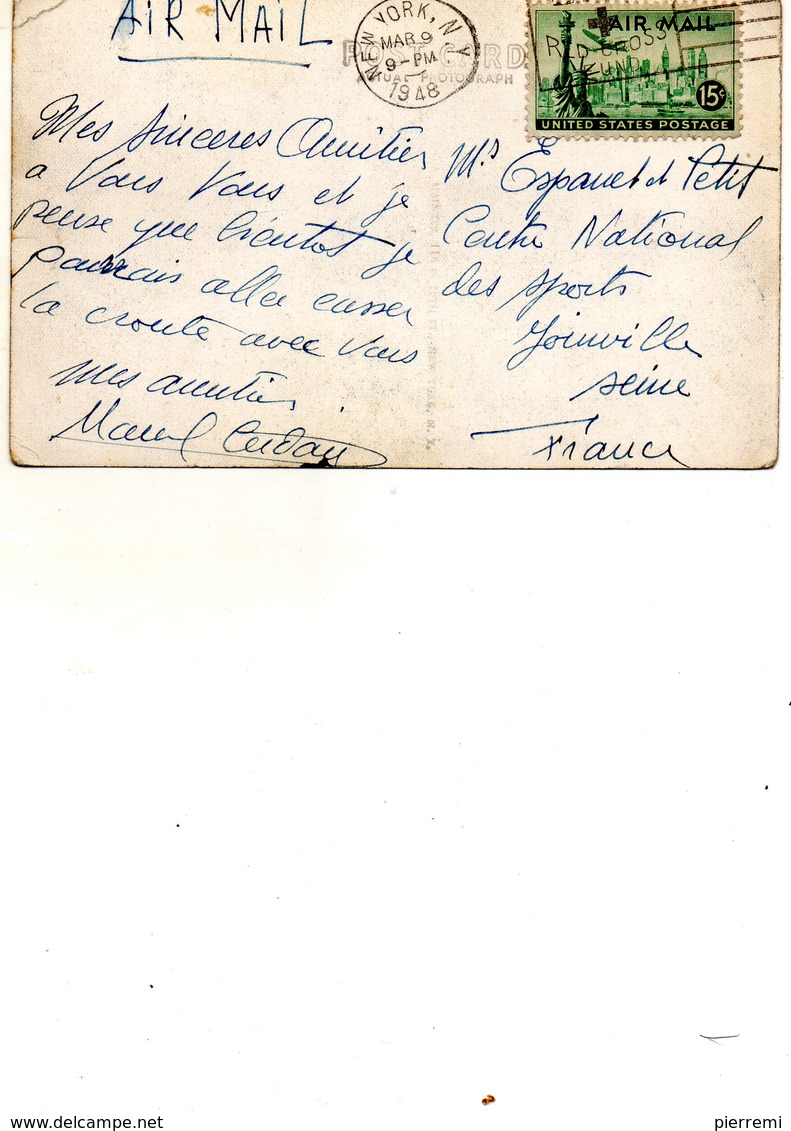 AIR MAIL
NEW YORK, N.Y.
MAR 9
9-PM
1948
POST CARD
ACTUAL PHOTOGRAPH
AIR MAIL
RED CROSS
FUND
15¢
UNITED STATES POSTAGE
Mes sinceres Amitier
a Vous Vous et je
pense que bientot je
pourrais aller casser
la croute avec Vous
mes amities
Marcel Cerdan
Mrs Espanet et Petit
Centre National
des sports
Joinville
seine
France
pierremi